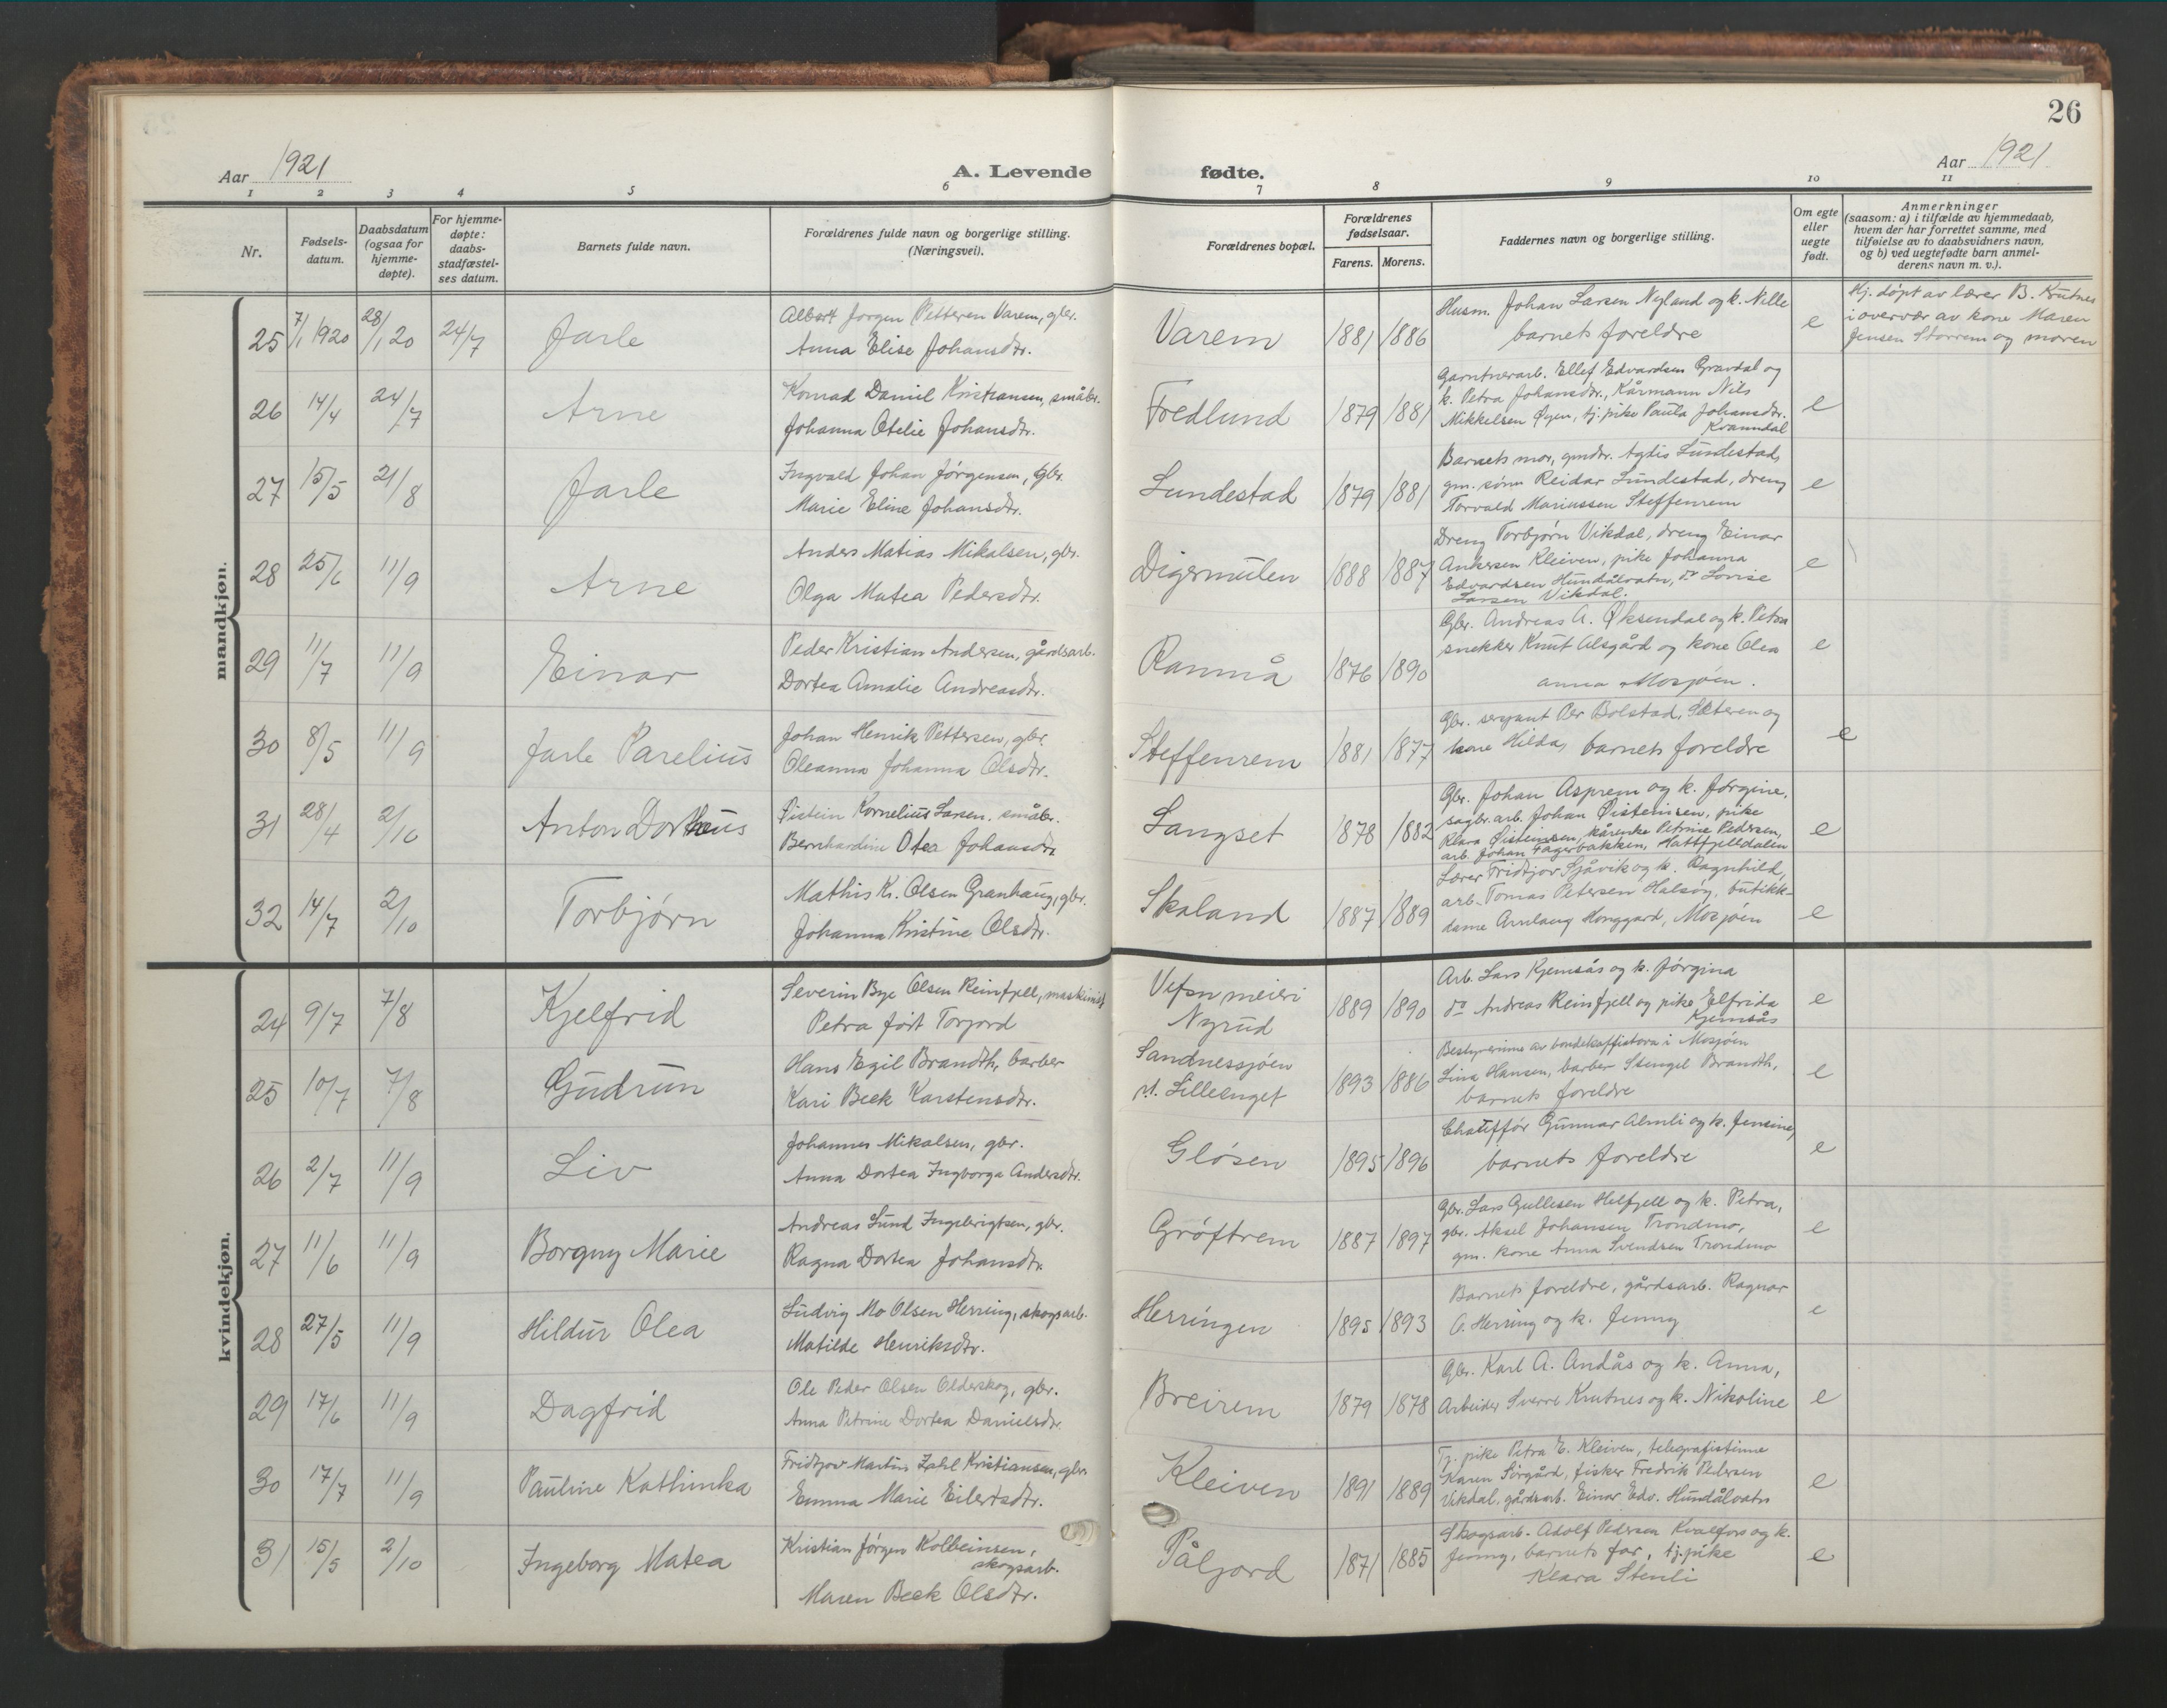 26
Aar 1921
A. Levende fødte.
Aar 1921
1 2 3 4 5 6 7 8 9 10 11
Nr.
Fødsels-
datum.
Daabsdatum
(ogsaa for
hjemme-
døpte).
For hjemme-
døpte:
daabs-
stadfæstel-
ses datum.
Barnets fulde navn.
Forældrenes fulde navn og borgerlige stilling.
(Næringsvei).
Forældrenes bopæl.
Forældrenes
fødselsaar.
Farens. Morens.
Faddernes navn og borgerlige stilling.
Om egte
eller
uegte
født.
Anmerkninger
(saasom: a) i tilfælde av hjemmedaab,
hvem der har forrettet samme, med
tilføielse av to daabsvidners navn,
og b) ved uegtefødte barn anmel-
derens navn m. v.).
mandkjøn.
25 7/1 1920 28/1 20 24/7 Jarle
Albert Jørgen Petterson Varem, gbr.
Anna Elise Johansdtr.
Varem 1881 1886
Husm. Johan Larsen Nyland og k. Nelle
barnets foreldre
e
Hj. døpt av lærer B. Krutnes
i overvær av kone Maren
Jensen Storrem og moren
26 14/4 24/7 Arne
Konrad Daniel Kristiansen, småbr.
Johanna Otelie Johansdtr.
Fredlund 1879 1881
Gartnerarb. Ellef Edvardsen Gravdal og
k. Petra Johansdtr., Kårmann Nils
Mikkelsen Øyen, tj. pike Paula Johansdtr.
Kvanndal
e
27 15/5 21/8 Jarle
Ingvald Johan Jørgensen, gbr.
Marie Eline Johansdtr.
Lundestad 1879 1881
Barnets mor, gmdtr. Agdis Lundestad,
gm. sønn Reidar Lundestad, dreng
Torvald Mariussen Steffenrem
e
28 25/6 11/9 Arne
Anders Matias Mikalsen, gbr.
Olga Matea Pedersdtr.
Digermulen 1888 1887
Dreng Torbjørn Vikdal, dreng Einar
Andersen Kleiven, pike Johanna
Edvardsen Hundålvatn, do Lovise
Larsen Vikdal.
e
29 11/7 11/9 Einar
Peder Kristian Andersen, gårdsarb.
Dortea Amalie Andreasdtr.
Ranmå 1876 1890
Gbr. Andreas A. Øksendal og k. Petra
snekker Knut Alsgård og kone Olea
Anna Mosjøen.
e
30 8/5 11/9 Jarle Parelius
Johan Henrik Pettersen, gbr.
Oleanna Johanna Olsdtr.
Steffenrem 1881 1877
Gbr. sersjant Per Bolstad, Sæteren og
kone Hilda, barnets foreldre
e
31 28/4 2/10 Anton Dortheus
Øistein Kornelius Larsen. småbr.
Bernhardine Otea Johansdtr.
Langset 1878 1882
Gbr. Johan Asprem og k. Jørgine.
sagbr. arb. Johan Øisteinsen, pike
Klara Øisteinsen, kårenke Petrine Pedersen,
arb. Johan Fagerbakken, Hattfjelldalen
e
32 14/7 2/10 Torbjørn
Mathis Kr. Olsen Granhaug, gbr.
Johanna Kristine Olsdtr.
Skaland 1887 1889
Lærer Fridtjov Sjåvik og k. Ragnhild,
arb. Tomas Petersen Halsøy, butikk-
dame Arnlaug Honggard, Mosjøen
e
kvindekjøn.
24 9/7 7/8 Kjelfrid
Severin Bye Olsen Reinfjell, maskinist
Petra født Torjord
Vefsn meieri
Nyrud
1889 1890
Arb. Lars Kjemsås og k. Jørgina
do Andreas Reinfjell og pike Elfrida
Kjemsås
e
25 10/7 7/8 Gudrun
Hans Egil Brandth, barber
Kari Beck Karstensdtr.
Sandnessjøen
Lilleenget
1893 1886
Bestyrerinne av bondekaffistova i Mosjøen
Lina Hansen, barber Stengel Brandth,
barnets foreldre
e
26 2/7 11/9 Liv
Johannes Mikalsen, gbr.
Anna Dortea Ingborga Andersdtr.
Gløsen 1895 1896
Chauffør Gunnar Almli og k. Jensine,
barnets foreldre
e
27 11/6 11/9 Borgny Marie
Andreas Lund Ingebrigtsen, gbr.
Ragna Dortea Johansdtr.
Grøftrem 1887 1897
Gbr. Lars Gullesen Helfjell og k. Petra,
gbr. Aksel Johansen Trondmo,
gm. kone Anna Svendsen Trondmo
e
28 27/5 11/9 Hildur Olea
Ludvig Mo Olsen Herring, skogsarb.
Matilde Henriksdtr.
Herringen 1895 1893
Barnets foreldre, gårdsarb. Ragnar
O. Herring og k. Jenny
e
29 17/6 11/9 Dagfrid
Ole Peder Olsen Olderskog, gbr.
Anna Petrine Dortea Danielsdtr.
Breirem 1879 1878
Gbr. Karl A. Andås og k. Anna,
Arbeider Sverre Krutnes og k. Nikoline
e
30 17/7 11/9 Pauline Kathinka
Fridtjov Martin Zahl Kristiansen, gbr.
Emma Marie Eilertsdtr.
Kleiven 1891 1889
Tj. pike Petra E. Kleiven, telegrafistinne
Karen Sørgård, fisker Fredrik Pedersen
Vikdal, gårdsarb. Einar Edv. Hundålvatn
e
31 15/5 2/10 Ingeborg Matea
Kristian Jørgen Kolbeinsen,
skogsarb.
Maren Beck Olsdtr.
Påljord 1871 1885
Skogsarb. Adolf Pedersen Kvalfors og k.
Jenny, barnets far, tj. pike
Klara Stenli
e